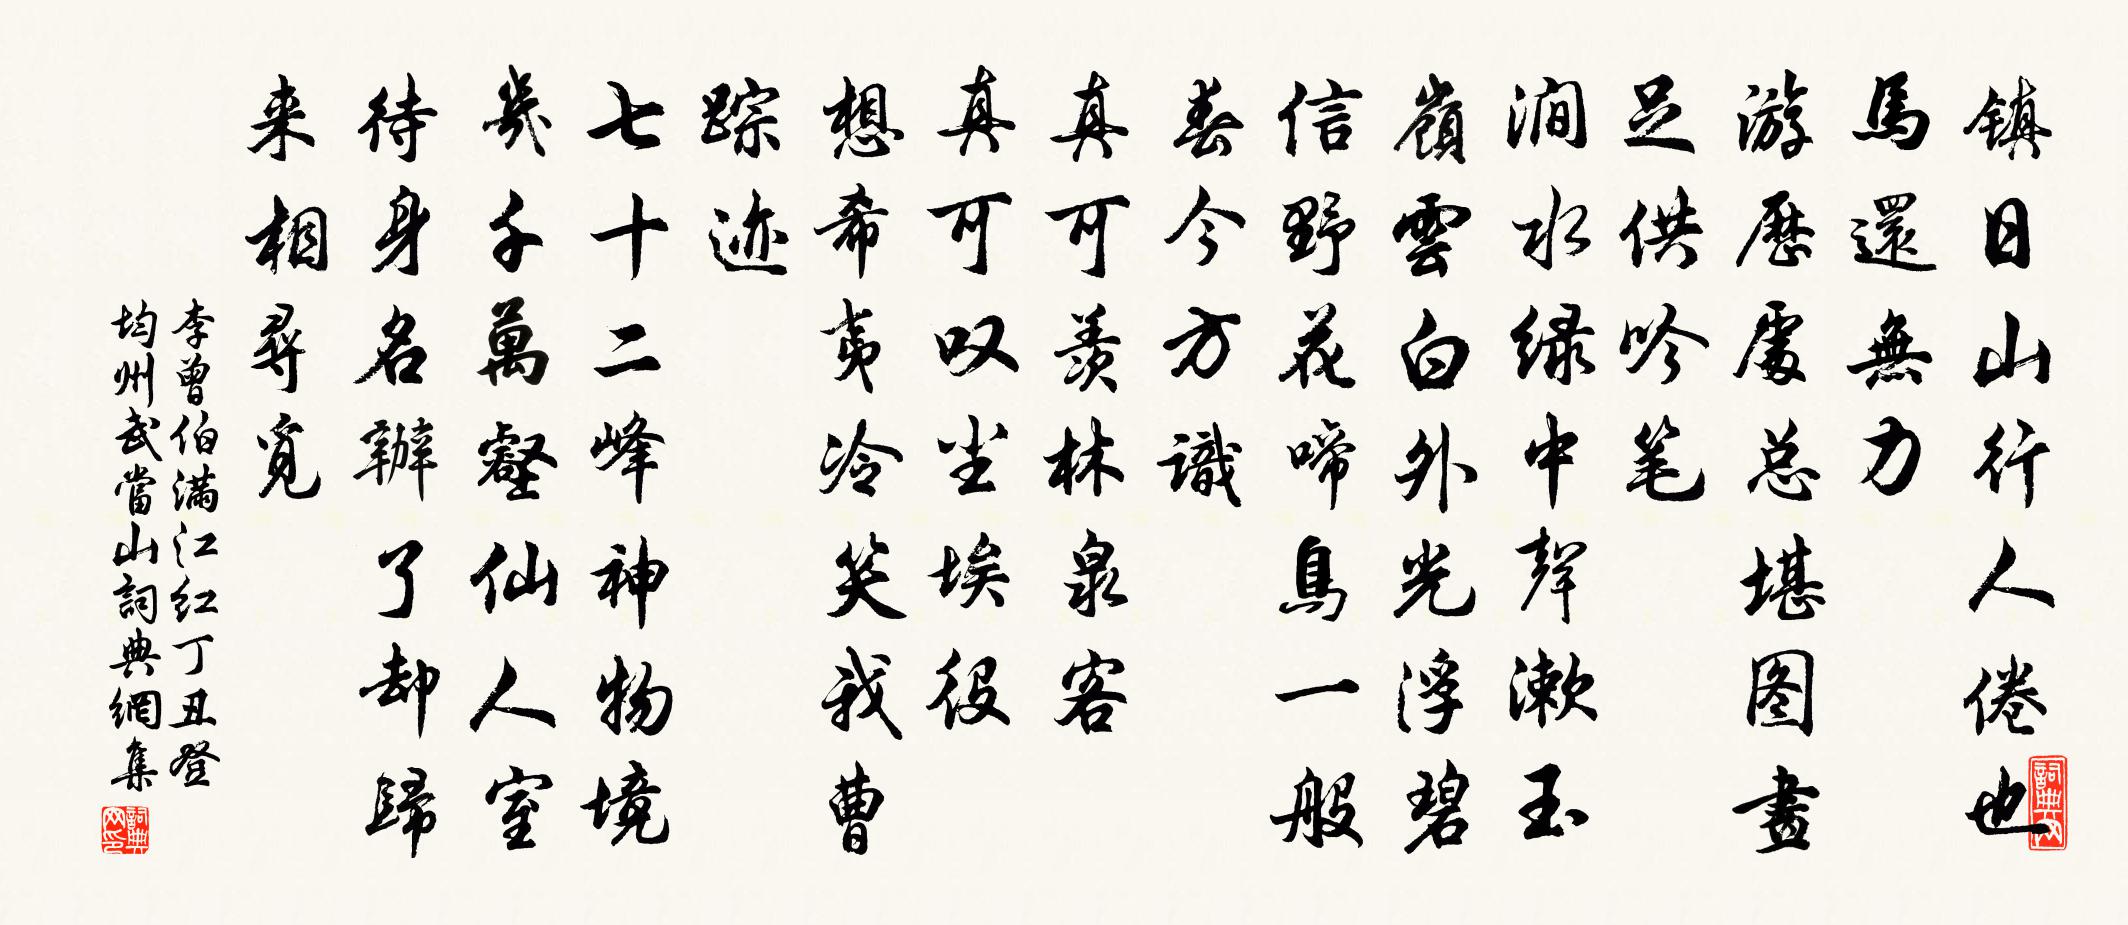 镇日山行人倦也
馬還無力
游歷處总堪图畫
足供吟笔
澗水緑中聲漱玉
嶺雲白外光浮碧
信野花啼鳥一般
春今方識
真可羨林泉客
真可叹尘埃役
想希夷冷笑我曹
踪迹
七十二峰神物境
幾千萬壑仙人室
待身名辦了却歸
来相尋覓
李曾伯满江红丁丑登
均州武當山詞典網集
詞典网
詞典网印